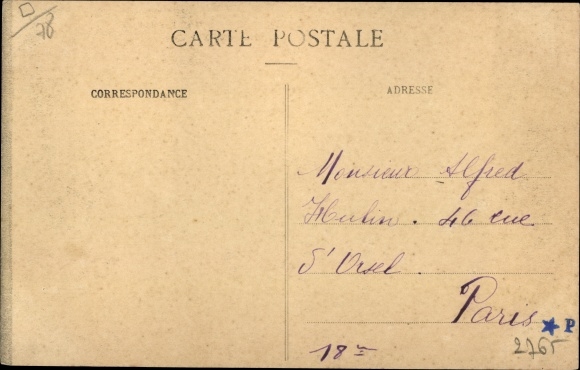 78
CARTE POSTALE
CORRESPONDANCE
ADRESSE
Monsieur Alfred
Hulin. 46 rue
d'Orsel.
Paris
P
2765
18me